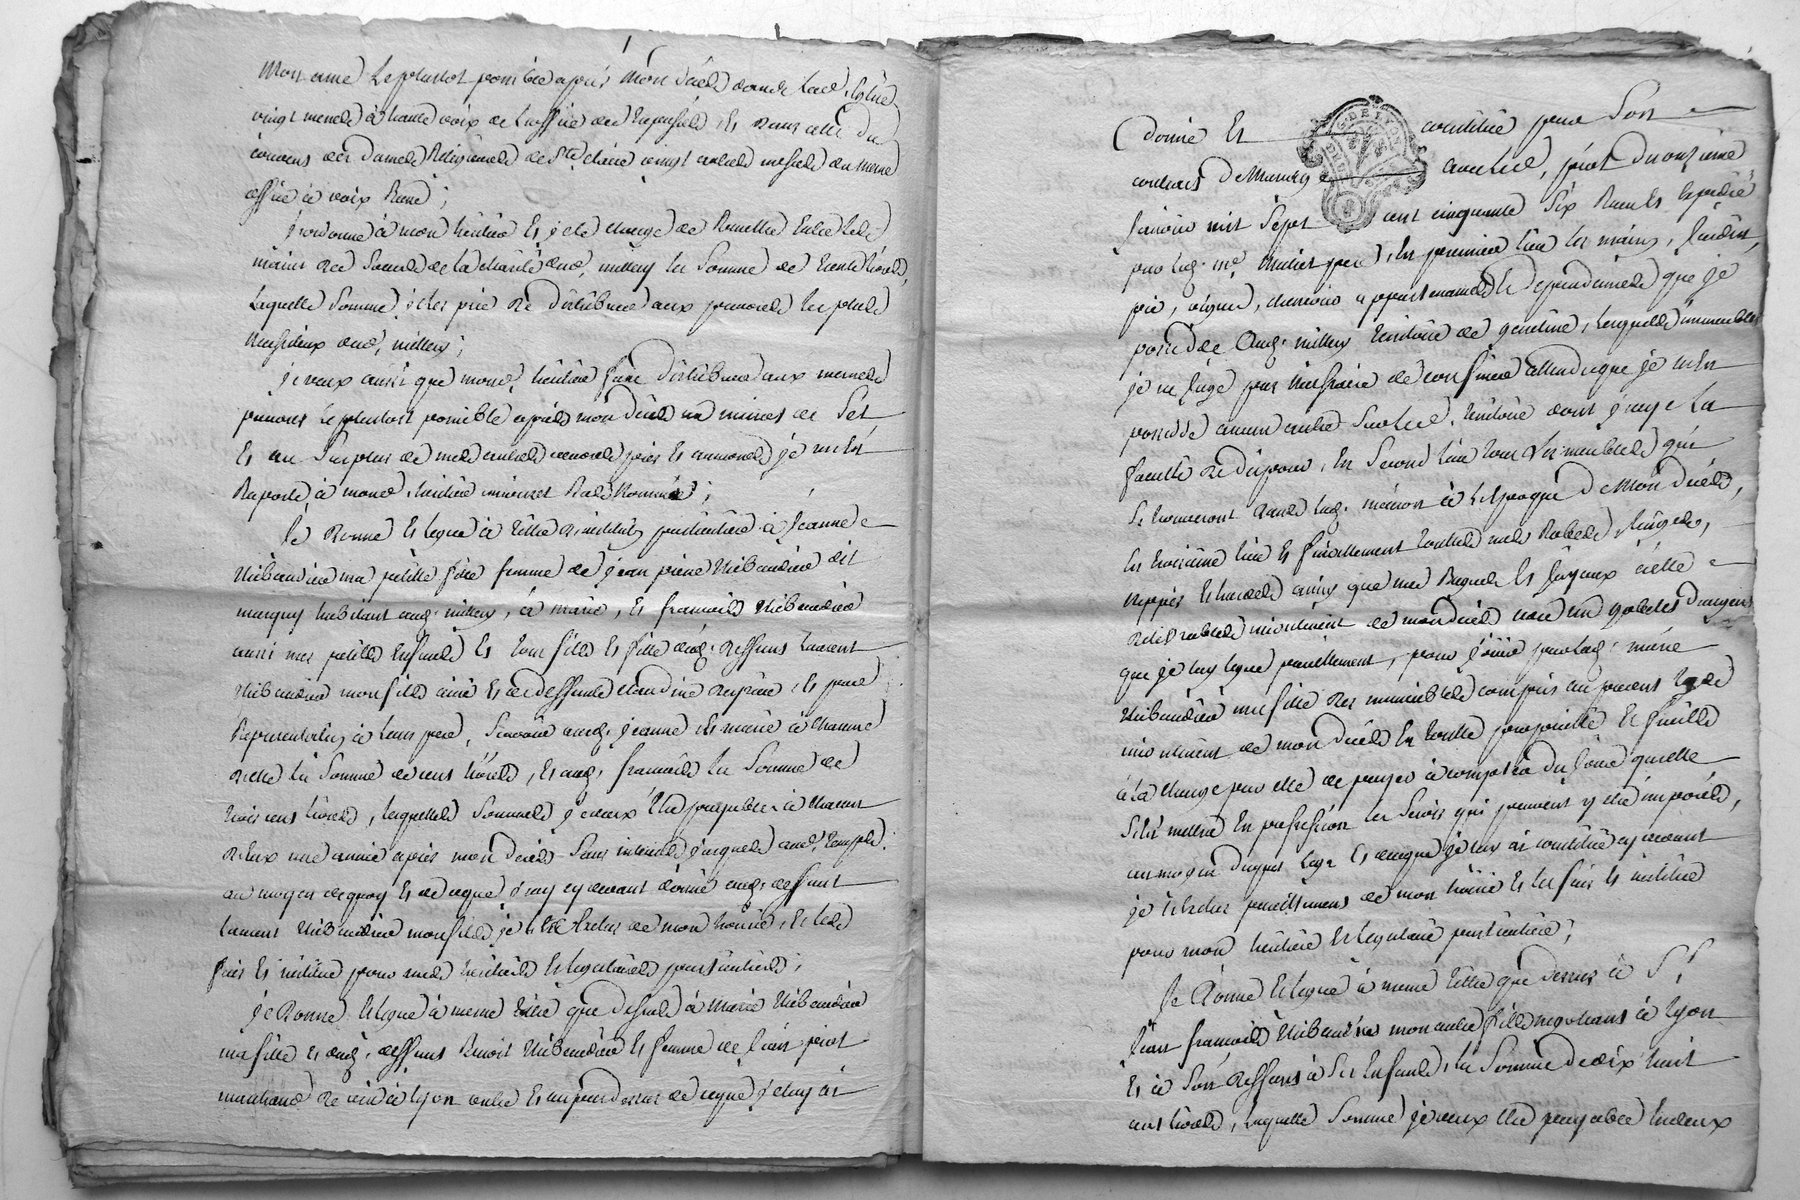 mon ame le plustot possible après mon décès dans lad. Eglise
vingt messes à haute voix de l'office des Trépassés, et dans celle du
couvent des dames Religieuses de Ste. claire vingt autres messes du meme
office à voix Basse ;
j'ordonne à mon héritier et je le charge de Remettre entre les
mains des Sœurs de la charité dud. millery la Somme de trente livres,
laquelle Somme je les prie de distribuer aux pauvres les plus
nécessiteux dud. millery ;
je veux aussi que mond. héritier fasse distribuer aux memes
pauvres le plustost possible après mon décès un minot de Sel
et au Surplus de mes autres œuvres pies et aumones je m'en
Raporte à mond. héritier
Je Donne et legue à titre d'institution particulière à Jeanne
Thibaudier ma petite fille femme de jean pierre Thibaudier dit
habitant aud. millery, à marie, et françois Thibaudier
aussi mes petits Enfants et tous fils et filles dud. deffunt Laurent
Thibaudier mon fils ainé et de deffunte claudine et pour
Représentation de leur père, Scavoir auxd. jeanne et marie à chacune
d'elle la Somme de cent livres, et aud. françois la Somme de
trois cent livres, lesquelles Sommes je veux être payables à chacun
d'eux une année après mon décès Sans intérêts jusques aud. temps,
au moyen de quoy et de ce que j'ay cy devant donné aud. deffunt
Laurent Thibaudier mon fils je les Exclus de mon hoirie, et les
fais et institue pour mes héritiers et légataires particuliers ;
je Donne et legue à meme titre que dessus à marie Thibaudier
ma fille et dud. deffunt Benoit Thibaudier et femme de jean pirot
marchand de vin à lyon outre et au pardessus de ce que je luy ai
Donné et constitué pour Son
contract de Mariage avec led. pirot du onzieme
Janvier mil Sept cent cinquante Six Reçu et expédié
par led. me. père, en premier lieu les maison, jardin,
pré, vigne, appartenances et dépendances que je
possède aud. millery territoire de lesquels immeubles
je ne juge pas nécessaire de confiner attendu que je n'en
possède aucun autre Sur led. territoire dont j'aye la
faculté de disposer, en Second lieu tous les meubles qui
Se trouveront dans lad. maison à l'Epoque de Mon décès,
en troisième lieu et finallement touttes mes Robes, linges,
nippes et hardes ainsy que mes Bagues et joyaux
de mon décès avec un gobelet d'argent
que je luy legue pareillement, pour jouir par lad. marie
Thibaudier ma fille des immeubles compris au présent legs
de mon décès En toutte propriété et
à la charge par elle de payer à compter du jour qu'elle
S'en mettra En possession les Servis qui peuvent y être imposés,
au moyen duquel legs et de ce que je luy ai constitué cy devant
je l'exclus pareillement de mon hoirie et la fais et institue
pour mon héritière et légataire particulière ;
Je Donne et legue à meme titre que dessus à Sr.
Jean françois Thibaudier mon autre fils négotiant à lyon
et à Son deffaut à Ses Enfants, la Somme de dix huit
cent livres, laquelle Somme je veux être payable En deux